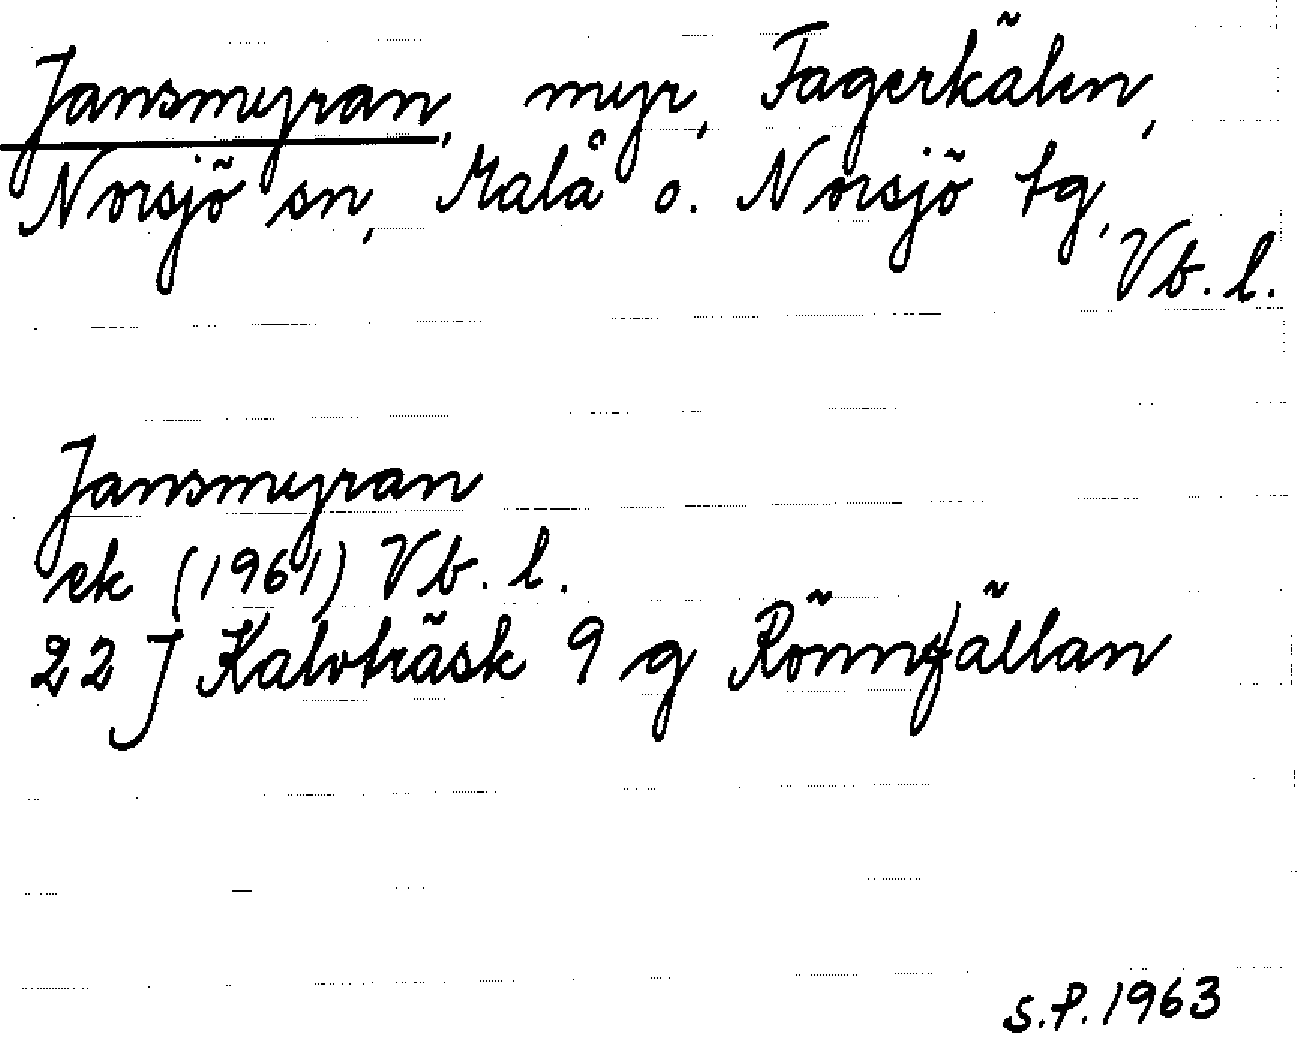 Jansmyran, myr, Fagerkälen,
Norsjö sn, Malå o. Norsjö tg,
Vb. l.
Jansmyran
ek (1961) Vb. l.
22 J Kalvträsk 9 g Rönnfällan
S.P. 1963